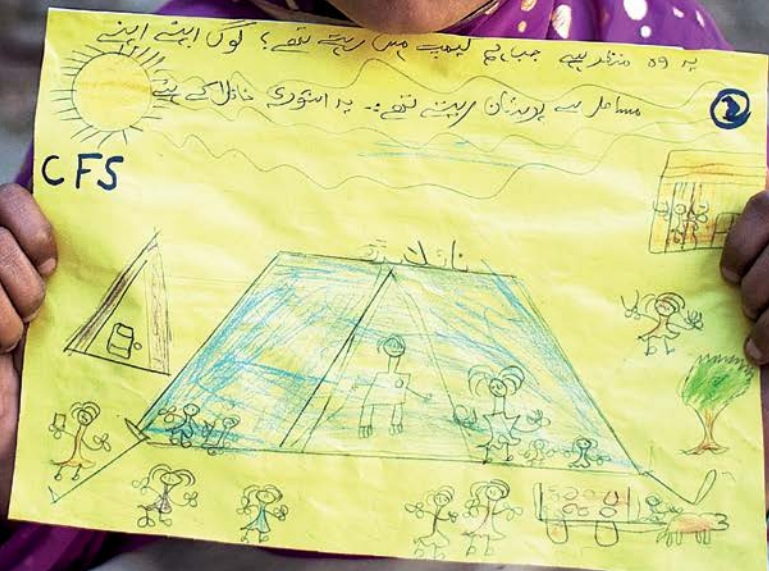 یہ وہ منظر ہے جب ہم کیمپ میں رہتے تھے؟ لوگ اپنے اپنے
مسائل سے پریشان رہتے تھے :- یہ اسٹوری کے
2
CFS